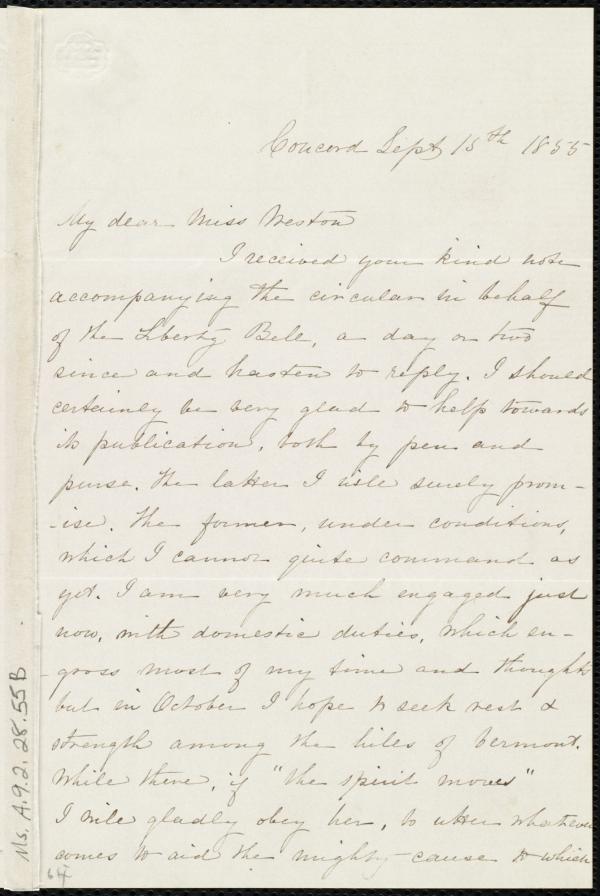 Concord Sept 15th 1855
My dear Miss Weston
I received your kind note
accompanying the circular in behalf
of the Liberty Bell, a day or two
since and hasten to reply. I should
certainly be very glad to help towards
its publication, both by pen and
purse. The latter I will surely prom-
-ise. The former, under conditions,
which I cannot quite command as
yet. I am very much engaged just
now, with domestic duties, which en-
-gross most of my time and thoughts
but in October I hope to seek rest &
strength among the hills of Vermont.
While there, if "the spirit moves"
I will gladly obey her, to utter whatever
comes to aid the mighty cause to which
Ms. A.9.2.28.55B
64